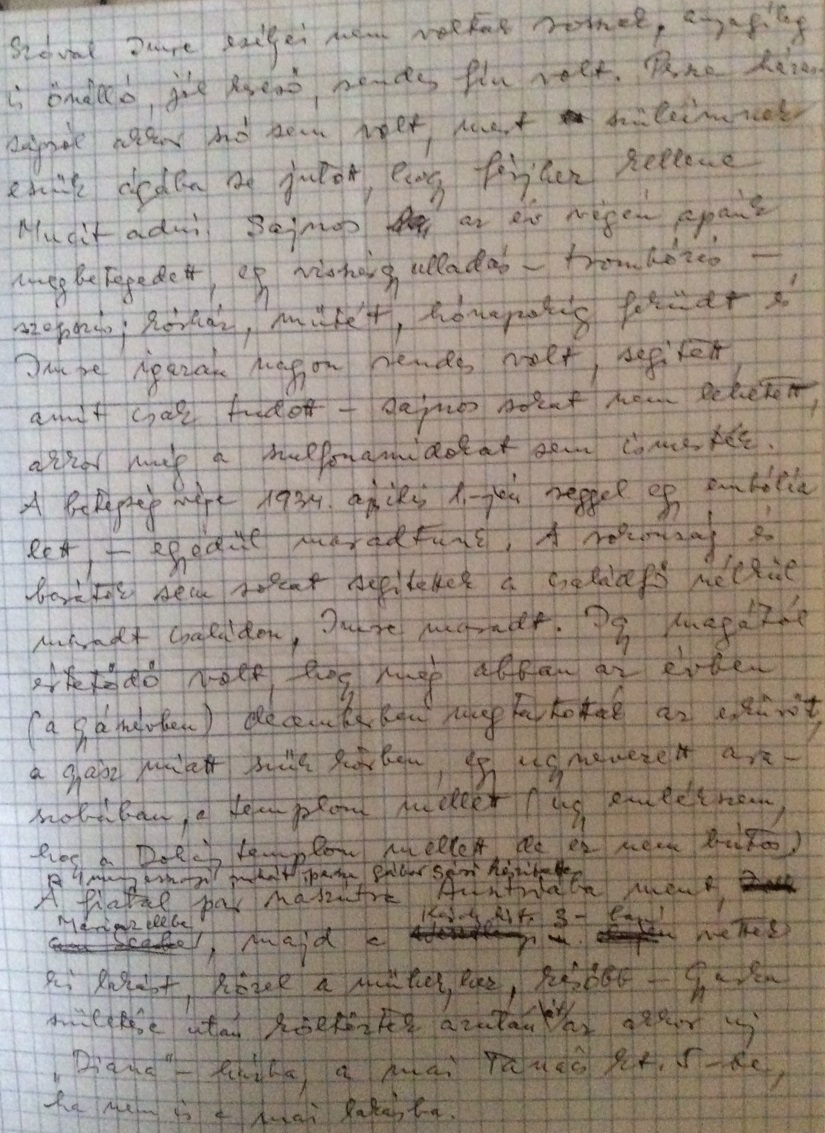 Szóval Imre esélyei nem voltak rosszak, anyagilag
is önálló, jól kereső, rendes fiú volt. Persze háza-
sságról akkor szó sem volt, mert szüleimnek
eszük ágába se jutott, hogy férjhez kellene
Mucit adni. Sajnos az év végén apánk
megbetegedett, egy visszérgyulladás – trombózis –
szepszis, kórház, műtét, hónapokig feküdt és
Imre igazán nagyon rendes volt, segített
amit csak tudott – sajnos sokat nem lehetett,
akkor még a sulfonamidokat sem ismerték.
A betegség vége 1934. április 1.-jén reggel egy embólia
lett, – egyedül maradtunk. A rokonság és
barátok sem sokat segítettek a családfő nélkül
maradt családon, Imre maradt. Így magától
értetődő volt, hogy még abban az évben
(a gyászévben) decemberben megtartották az esküvőt,
a gyász miatt szűk körben, egy úgynevezett
szobában, a templom mellett (úgy emlékszem,
hogy a Dohány templom mellett de ez nem biztos)
A fiatal pár nászútra Ausztriába ment,
Mariazellbe, majd a 3- vettek
ki lakást, közel a műhelyhez, később – Gyurka
születése után költöztek azután át az akkor új
„Diana"-házba, a mai Tanács krt. 5-be,
ha nem is a mai lakásba.